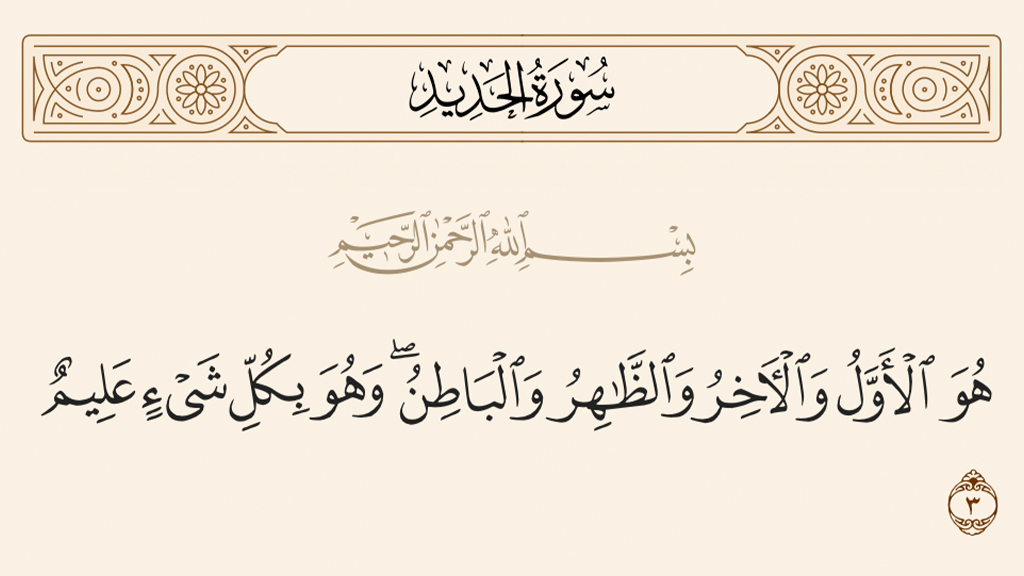 سُورَةُ الحَدِيدِ
بِسْمِ ٱللَّهِ ٱلرَّحْمَٰنِ ٱلرَّحِيمِ
هُوَ ٱلْأَوَّلُ وَٱلْـَٔاخِرُ وَٱلظَّـٰهِرُ وَٱلْبَاطِنُ ۖ وَهُوَ بِكُلِّ شَىْءٍ عَلِيمٌ
٣